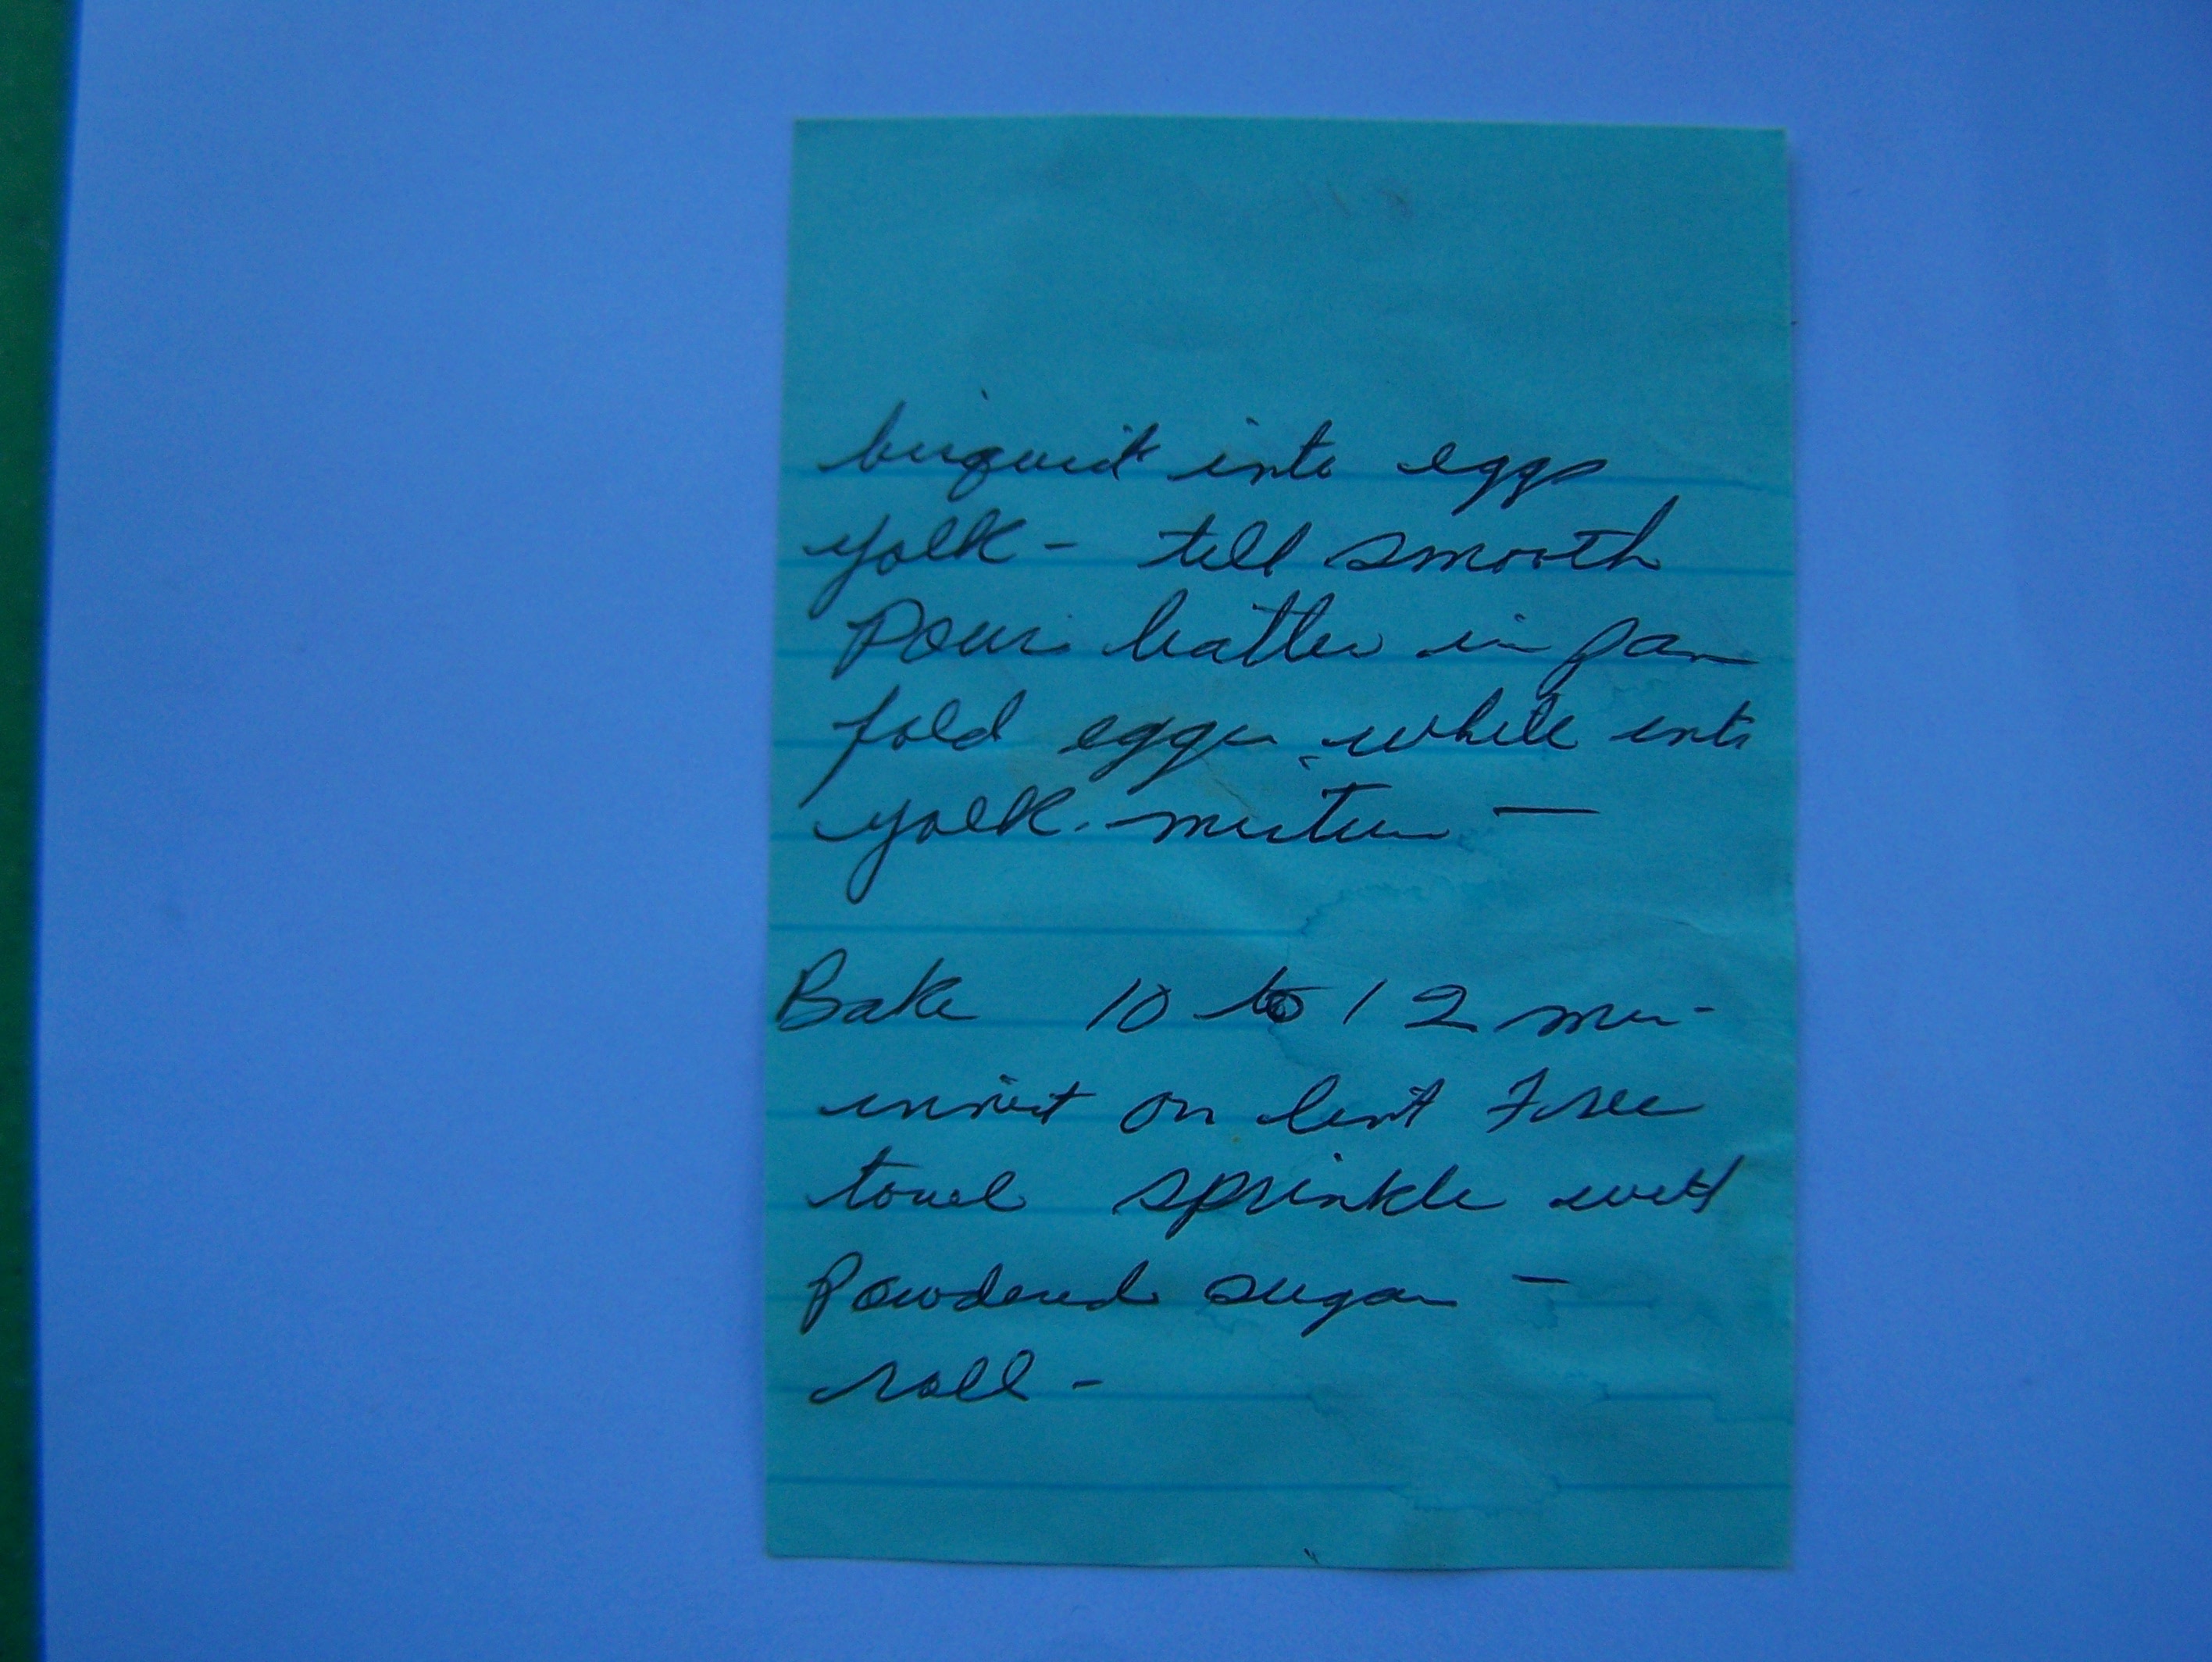 bisquit into eggs
yolk - till smooth
Pour batter in pan
fold eggs white into
yolk mixture —
Bake 10 to 12 min -
invert on lint free
towel sprinkle with
Powdered sugar —
roll -